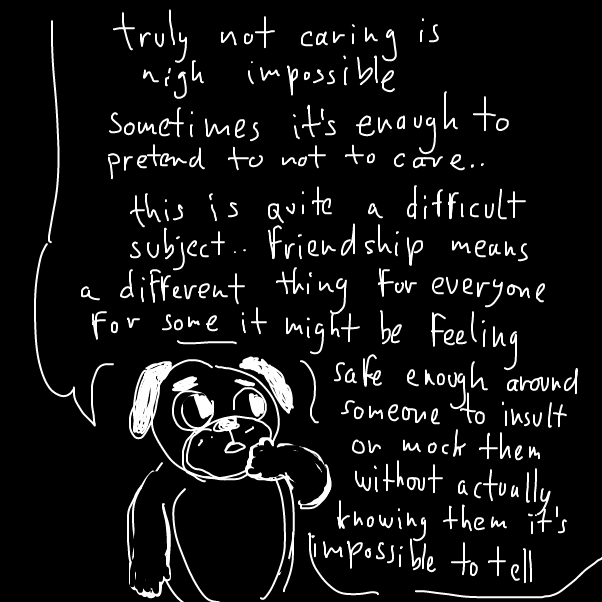 truly not caring is
nigh impossible
Sometimes it's enough to
pretend to not to care..
this is quite a difficult
subject.. Friendship means
a different thing for everyone
For some it might be feeling
safe enough around
someone to insult
or mock them
without actually
knowing them it's
impossible to tell